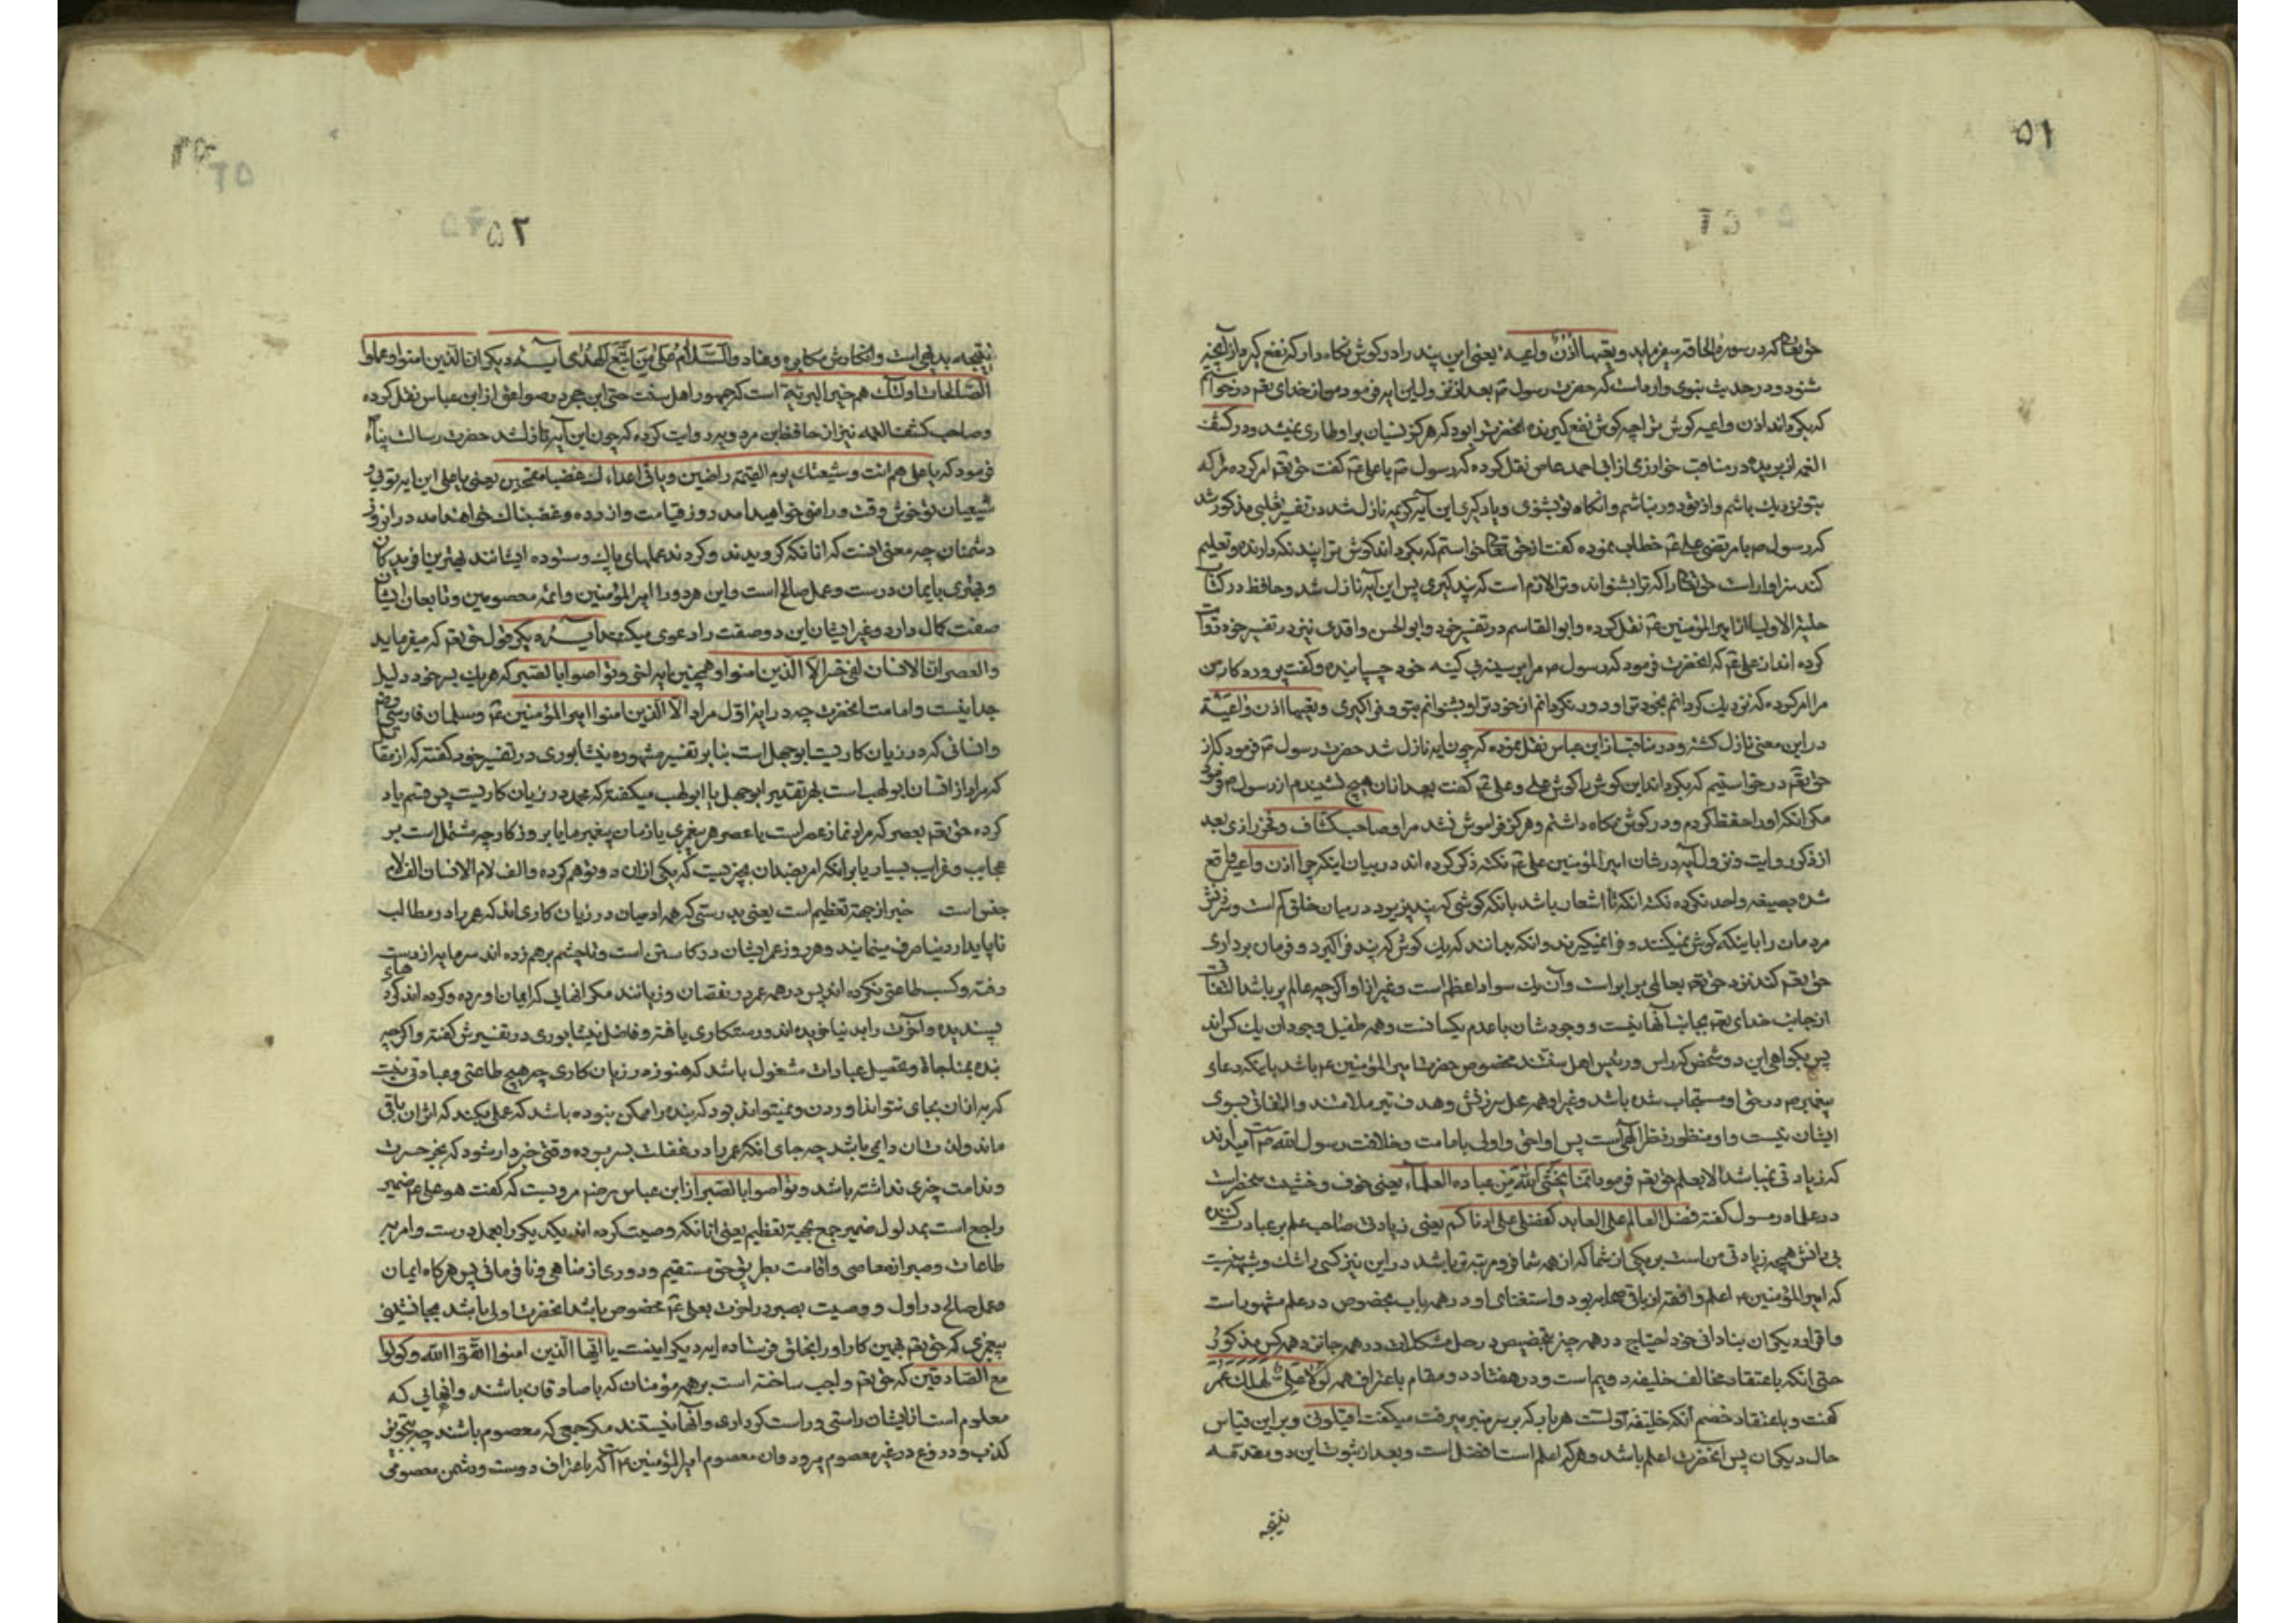 ۵۱
حق تعالی که در سورهٔ الحاقه میفرماید و تعیها اذن واعیه یعنی این پند را در کوش نکاه دارد که نفع کیرد از آنچه
شنود و در حدیث نبوی وارد است که حضرت رسول ص بعد از نزول این ایه فرمود من از خدای تعم درخواستم
که بکرداند اذن واعیه کوش ترا چه کوش نفع کیرنده انحضرت را بود که هرکز نسیان بر او طاری نمیشد و در کشف
الغمه از بریده در مناقب خوارزمی از ابی احمد عاصی نقل کرده که رسول ص با علی ع کفت حق تعم امر کرده مرا که
بتو نزدیک باشم و از تو دور نباشم وانکاه تو بشنوی و یاد کیری این آیه کریمه نازل شد در تفسیر ثعلبی مذکور شد
که رسول ص با مرتضی علی ع خطاب نموده کفت از حق تعالی خواستم که بکرداند کوش ترا پند نکهدارنده و تعلیم
کند سزاوار است حق تعالی را که ترا بشنواند و ترا لازم است که پند کیری پس این آیه نازل شد و حافظ در کتاب
حلیة الاولیا از امیر المؤمنین ع نقل کرده و ابو القاسم در تفسیر خود و ابو الحسن واقدی نیز در تفسیر خود روایت
کرده اند از علی ع که انحضرت فرمود که رسول ص مرا بر سینه بی کینه خود چسپانیده و کفت پروردکار من
مرا امر کرده که نزدیک کردانم بخود ترا و دور نکردانم از خود ترا و بشنوانم بتو و فرا کیری و تعیها اذن واعیة
در این معنی نازل کشته و در مناقب از ابن عباس نقل نموده که چون ایه نازل شد حضرت رسول ص فرمود که از
حق تعم درخواستیم که بکرداند این کوش را کوش علی و علی ع کفت بعد از ان هیچ نشنیدم از رسول ص
مکر انکه او را حفظ کردم و در کوش نکاه داشتم و هرکز فراموش نشد مرا و صاحب کشاف و فخر رازی بعد
از ذکر روایت و نزول آیه در شان امیر المؤمنین علی ع نکته ذکر کرده اند در بیان اینکه چرا اذن واعیه واقع
شده بصیغه واحد نکره نکته انکه تا اشعار باشد بانکه کوشی که پند پذیرد در میان خلق کم است و سرزنش
مردمان را باینکه کوش نمیکنند و فرا نمیکیرند و انکه بدانند که یک کوش که پند فرا کیرد و فرمان برداری
حق تعم کند نزد حق تعم بعالمی برابر است و آن یک سواد اعظم است و غیر از او اکرچه عالم پر باشد التفات
از جانب خدای تعم بجانب آنها نیست و وجودشان با عدم یکسانست و همه طفیل وجود ان یک کس اند
پس بکواهی این دو شخص که راس و رئیس اهل سنتند مخصوص حضرت امیر المؤمنین ع باشد باینکه دعای
پیغمبر ص در حق او مستجاب شده باشد و غیر او همه محل سرزنش و هدف تیر ملامتند و التفاتی بسوی
ایشان نیست و او منظور نظر الهی است پس او احق و اولی بامامت و خلافت رسول الله ص
که زیادتی نمیباشد الا بعلم حق تعم فرمود انما یخشی الله من عباده العلماء یعنی خوف و خشیت منحصر است
در علما و رسول کفته فضل العالم علی العابد کفضلی علی ادناکم یعنی زیادتی صاحب علم بر عبادت کننده
بی دانش همچو زیادتی من است بر یکی از شما که از همه شما فرومرتبه تر باشد در این نیز کسی را شک و شبهه نیست
که امیر المؤمنین ع اعلم و افقه از باقی صحابه بود و استغنای او در همه باب بخصوص در علم مشهور است
و اقرار دیکران بنادانی خود احتیاج در همه چیز بتخصیص در حل مشکلات در همه جا نزد همه کس مذکور
حتی انکه باعتقاد مخالف خلیفه دویم است و در هفتاد و دو مقام باعتراف همه لولا علی لهلک عمر
کفت و باعتقاد خصم آنکه خلیفه اولست هر بار که بر سر منبر میرفت میکفت اقیلونی و بر این قیاس
حال دیکران پس انحضرت اعلم باشد و هرکه اعلم است افضل است و بعد از ثبوت این دو مقدمه
نتیجه
۵۲
نتیجه بدیهی است و انکارش مکابره و عناد والسّلام علی من اتّبع الهدی آیه دیکر ان الذین امنوا و عملوا
الصالحات اولئک هم خیر البریّة است که جمهور اهل سنت حتی ابن حجر در صواعق از ابن عباس نقل کرده
و صاحب کشف الغمه نیز از حافظ ابن مردویه روایت کرده که چون این آیه نازل شد حضرت رسالت پناه
فرمود که یا علی هم انت و شیعتک یوم القیمة راضین و یاتی اعداءک غضبا مقمحین یعنی یا علی این ایه توئی و
شیعیان تو خوش وقت و راضی خواهید امد روز قیامت و ازرده و غضبناک خواهند امد در انروز
دشمنان چه معنی اینست که انانکه کرویدند و کردند عملهای پاک و ستوده ایشانند بهترین افریدکان
و بهتری بایمان درست و عمل صالح است و این هر دو را امیر المؤمنین و ائمه معصومین و تابعان ایشان
صفت کمال دارد و غیر ایشان این دو صفت را دعوی میکنند آیه دیکر قول حق تعم که میفرماید
والعصر ان الانسان لفی خسر الا الذین امنوا و همچنین ایه اتی و تواصوا بالصبر که هر یک بسر خود دلیل
جدا نیست و امامت انحضرت چه در ایه اول مراد الا الذین امنوا امیر المؤمنین ع و سلمان فارسی
و انسانی که در زیان کاریست ابو جهل است بنابر تفسیر مشهوره نیشابوری در تفسیر خود کفته که از مقاتل
که مراد از انسان ابو لهب است بهر تقدیر ابو جهل یا ابو لهب میکفتند که محمد در زیان کاریست پس قسم یاد
کرده حق تعم بعصر که مراد نماز عصر است یا عصر هر پیغمبری یا زمان پیغمبر ما یا بروزکار چه مشتمل است بر
عجایب و غرایب بسیار یا بر انکه امر بضد ان چیزیست که یکی از ان دو توهم کرده و الف لام الانسان الف لام
جنس است خسر از جهة تعظیم است یعنی بدرستی که همه ادمیان در زیان کاری اند که عمر را در مطالب
ناپایدار دنیا صرف مینمایند و هر روز عمر ایشان در کاستی است و تا چشم بر هم زده اند سرمایه از دست
رفته و کسب طاعتی نکرده اند پس در همه عمر در نقصان و زیانند مکر انهائی که ایمان اورده و کرده اند کردهای
پسندیده و آخرت را بدنیا خریده اند و رستکاری یافته و فاضل نیشابوری در تفسیرش کفته و اکرچه
بنده بمناجات و تحصیل عبادات مشغول باشد که هنوز در زیان کاری چه هیچ طاعتی و عبادتی نیست
که به از ان بجای نتواند اوردن و نمیتواند بود که بنده را ممکن نبوده باشد که عملی بکند که اثر ان باقی
ماند و لذتشان دایمی باشد چه جای انکه عمر را در غفلت بسر برده و وقتی خبردار شود که بجز حسرت
و ندامت چیزی نداشته باشد و تواصوا بالصبر از ابن عباس رضم مرویست که کفت هو علی ع ضمیر
راجع است بمدلول ضمیر جمع بجهة تعظیم یعنی انانکه وصیت کرده اند یکدیکر را بعمل درست و امر به
طاعات و صبر از معاصی و اقامت بطریق حق مستقیم و دوری از مناهی و نافرمانی پس هرکاه ایمان
و عمل صالح در اول و وصیت بصبر در اخرت بعلی ع مخصوص باشد انحضرت اولی باشد بجانشینی
پیغمبری که حق تعم بهمین کار او را بخلق فرستاده ایه دیکر اینست یا ایها الذین امنوا اتقوا الله و کونوا
مع الصادقین که حق تعم واجب ساخته است بر همه مؤمنان که با صادقان باشند و انهایی که
معلوم است از ایشان راستی و راست کرداری و آنها نیستند مکر جمعی که معصوم باشند چه تجویز
کذب و دروغ در غیر معصوم میرود و ان معصوم امیر المؤمنین ع است که باعتراف دوست و دشمن معصومی